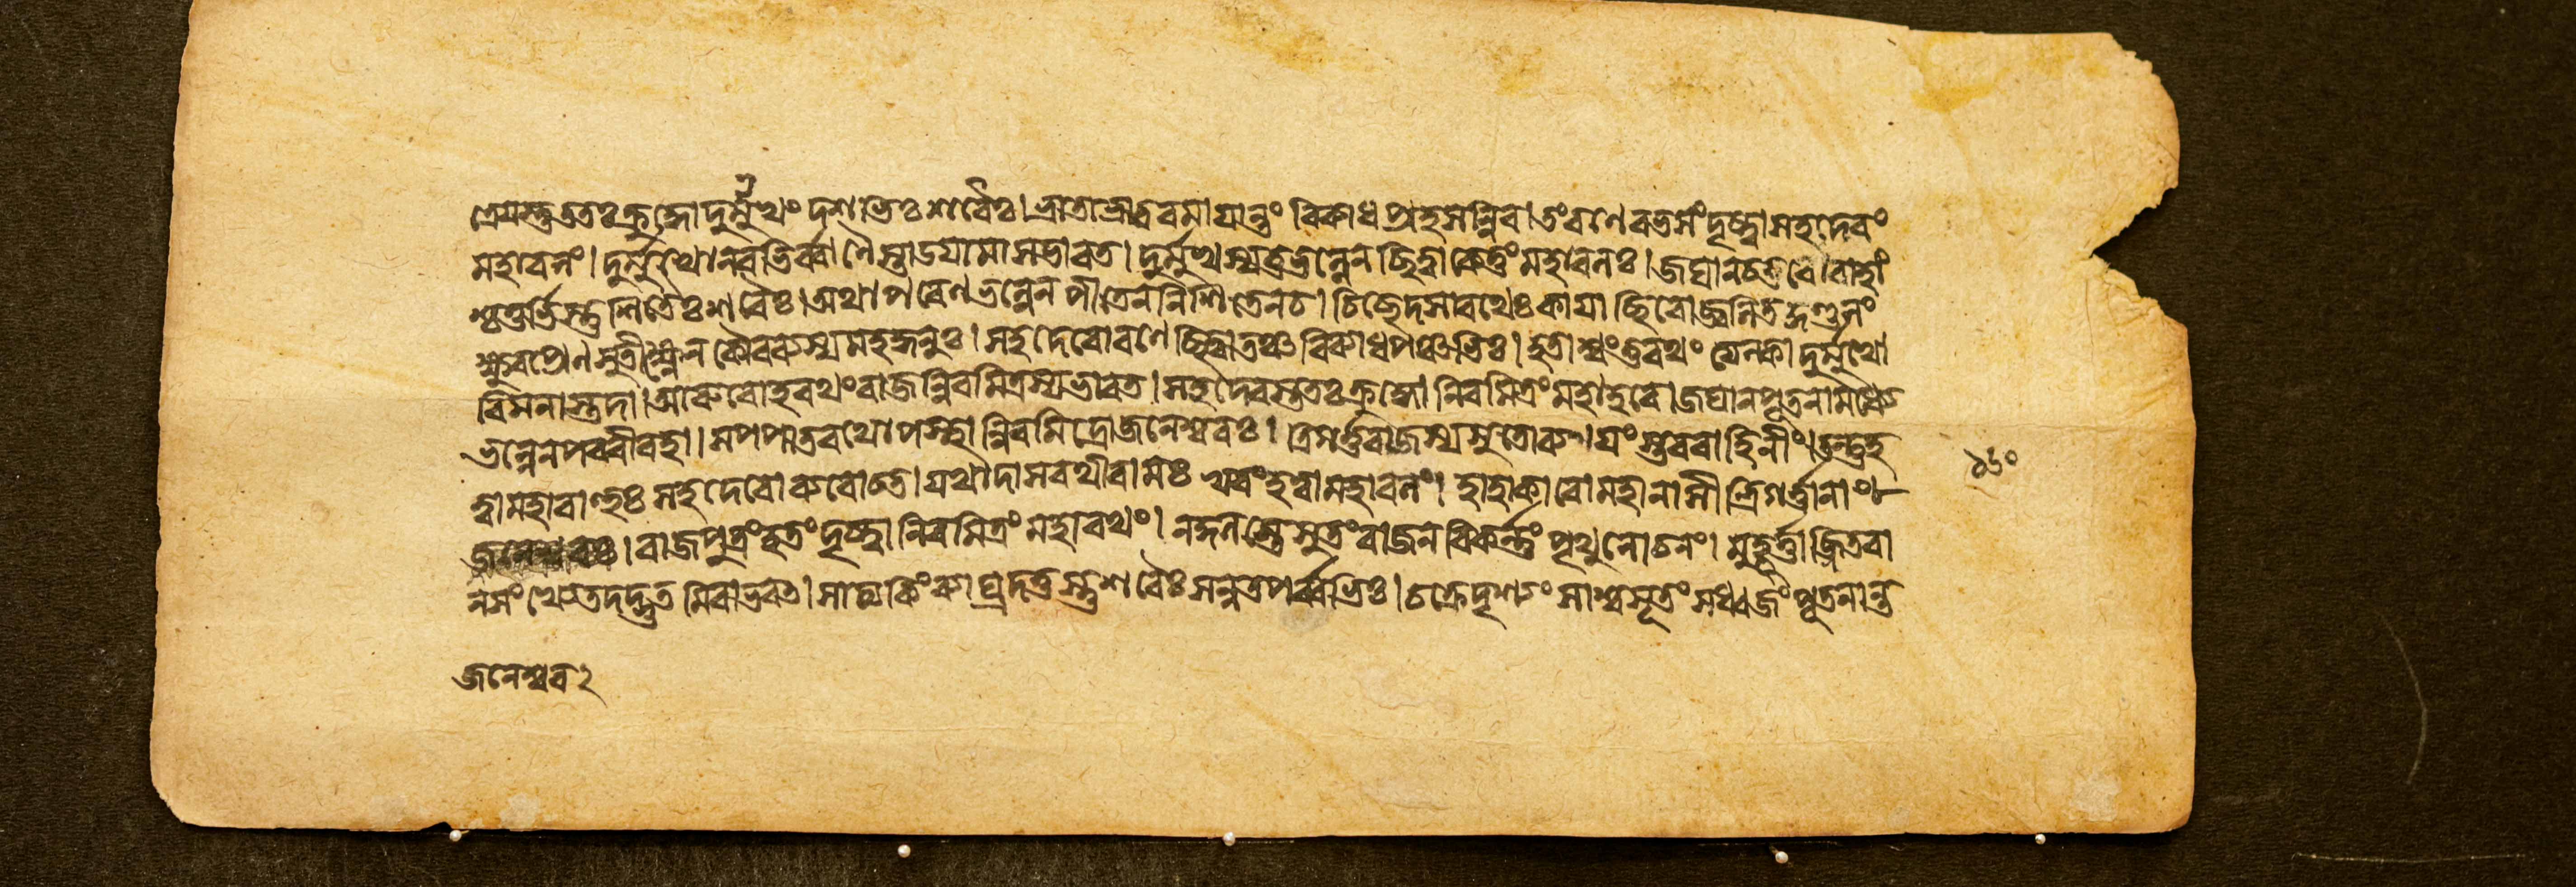 দ্রেযস্তু ততঃ ক্রুদ্ধো দুর্ম্মুখং দশভিঃ শরৈঃ। ভ্রাতা ভ্রাতরমাযান্তং বিব্যাধ প্রহসন্নিব। তং রণে রভসং দৃষ্ট্বা সহদেবং
মহাবলং। দুর্ম্মুখো নবভির্ব্বাণৈস্তাডযামাস ভারত। দুর্ম্মুখস্য তু ভল্লেন ছিত্ত্বা কেতুং মহাবলঃ। জঘান চতুরো বাহাং
শ্চতুর্ভিস্তু শিতৈঃ শরৈঃ। অথাপরেণ ভল্লেন পীতেন নিশিতেন চ। চিচ্ছেদ সারথেঃ কাযাচ্ছিরো জ্বলিতকুণ্ডলং
ক্ষুরপ্রেণ সুতীক্ষ্ণেন কৌরবস্য মহদ্ধনুঃ। সহদেবো রণে ছিত্ত্বা তঞ্চ বিব্যাধ পঞ্চভিঃ। হতাশ্বং তু রথং ত্যক্ত্বা দুর্ম্মুখো
বিমনাস্তদা। আরুরোহ রথং রাজন্নিরমিত্রস্য ভারত। সহদেবস্ততঃ ক্রুদ্ধো নিরমিত্রং মহাহবে। জঘান পৃতনামধ্যে
ভল্লেন পরবীরহা। স পপাত রথোপস্থান্নিরমিত্রো জনেশ্বরঃ। ত্রিগর্ত্তরাজস্য সুতো ব্যথযংস্তব বাহিনীং। তন্তু হ
ত্বা মহাবাহুঃ সহদেবো ব্যরোচত। যথা দাসরথী রামঃ খরং হত্বা মহাবলং। হাহাকারো মহানাসীত্ত্রিগর্ত্তানাং
জনেশ্বরঃ। রাজপুত্রং হতং দৃষ্ট্বা নিরমিত্রং মহারথং। নকুলস্তে সুতং রাজন বিকর্ন্নং পৃথুলোচনং। মুহূর্ত্তাজ্জিতবা
ন সংখ্যে তদদ্ভুতমিবাভবত। সাত্যকিং ব্যাঘ্রদত্তস্তু শরৈঃ সন্নতপর্ব্বভিঃ। চক্রেদৃশ্যং সাশ্বসূতং সধ্বজং পৃতনান্ত
১৬০
জনেশ্বর২